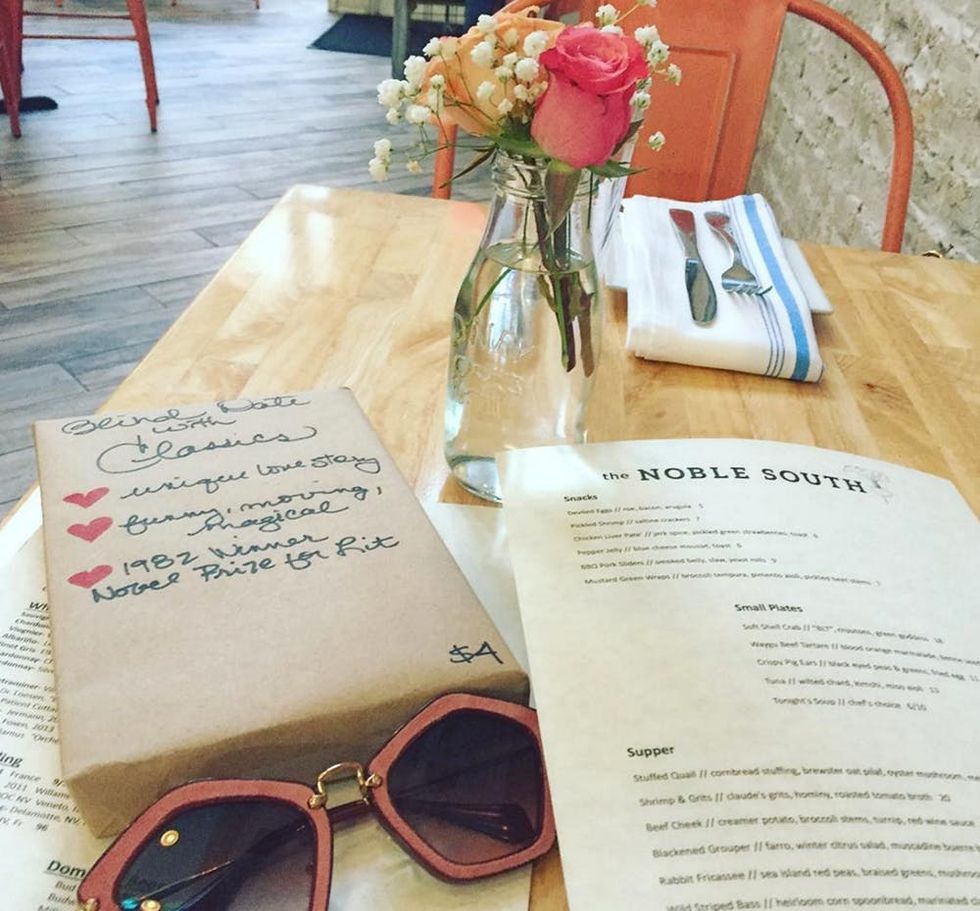 Blind Date
with
Classics
unique love story
funny, moving,
magical
1982 Winner
Nobel Prize for Lit
$4
the NOBLE SOUTH
Snacks
Deviled Eggs // roe, bacon, arugula 5
Pickled Shrimp // saltine crackers 7
Chicken Liver Pate' // jerk spice, pickled green strawberries, toast 6
Pepper Jelly // blue cheese mousse, toast 6
BBQ Pork Sliders // smoked belly, slaw, yeast rolls 9
Mustard Green Wraps // broccoli tempura, pimento aioli, pickled beet stems 7
Small Plates
Soft Shell Crab // "BLT", croutons, green goddess 18
Wagyu Beef Tartare // blood orange marmalade, lemon
Crispy Pig Ears // black eyed peas & greens, fried egg 11
Tuna // wilted chard, kimchi, miso aioli 13
Tonight's Soup // chef's choice 6/10
Supper
Stuffed Quail // cornbread stuffing, brewster oat pilaf, oyster mushroom,
Shrimp & Grits // claude's grits, hominy, roasted tomato broth 20
Beef Cheek // creamer potato, broccoli stems, turnip, red wine sauce
Blackened Grouper // farro, winter citrus salad, muscadine buerre
Rabbit Fricassee // sea island red peas, braised greens,
Wild Striped Bass // heirloom corn spoonbread, marinated
Dom
Bud